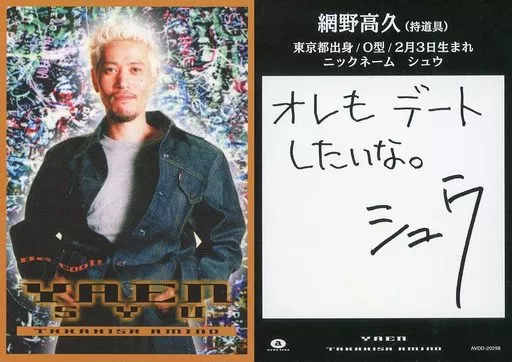 Be Cool!
YAEN
SYU
TAKAHISA AMINO
網野高久(持道具)
東京都出身/O型/2月3日生まれ
ニックネーム シュウ
オレも デート
したいな。
シュウ
a
YAEN
TAKAHISA AMINO
AVDD-20298